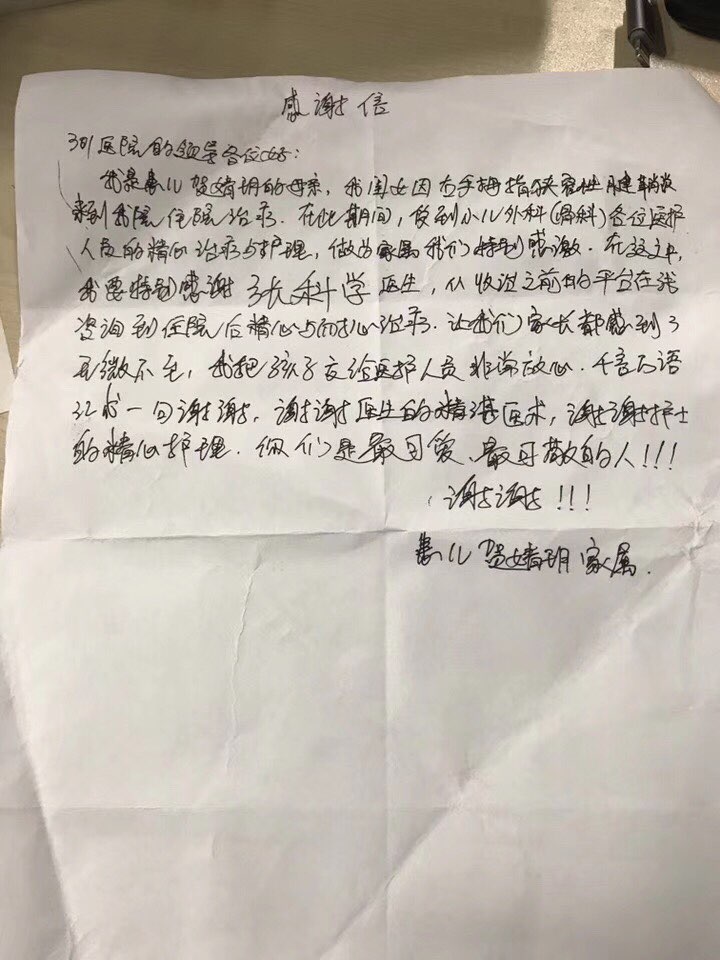 感谢信
301医院的领导各位好:
我是患儿贺婧玥的母亲,我闺女因右手拇指狭窄性腱鞘炎
来到我院住院治疗.在此期间,受到小儿外科(骨科)各位医护
人员的精心治疗与护理,做为家属我们特别感激.在这之中,
我要特别感谢张科学医生,从收治之前的平台在线
咨询到住院后精心与耐心治疗.让我们家长都感到了
无微不至,我把孩子交给医护人员非常放心.千言万语
汇成一句谢谢,谢谢医生的精湛医术,谢谢护士
的精心护理.你们是最可爱、最可敬的人!!!
谢谢!!!
患儿贺婧玥家属.